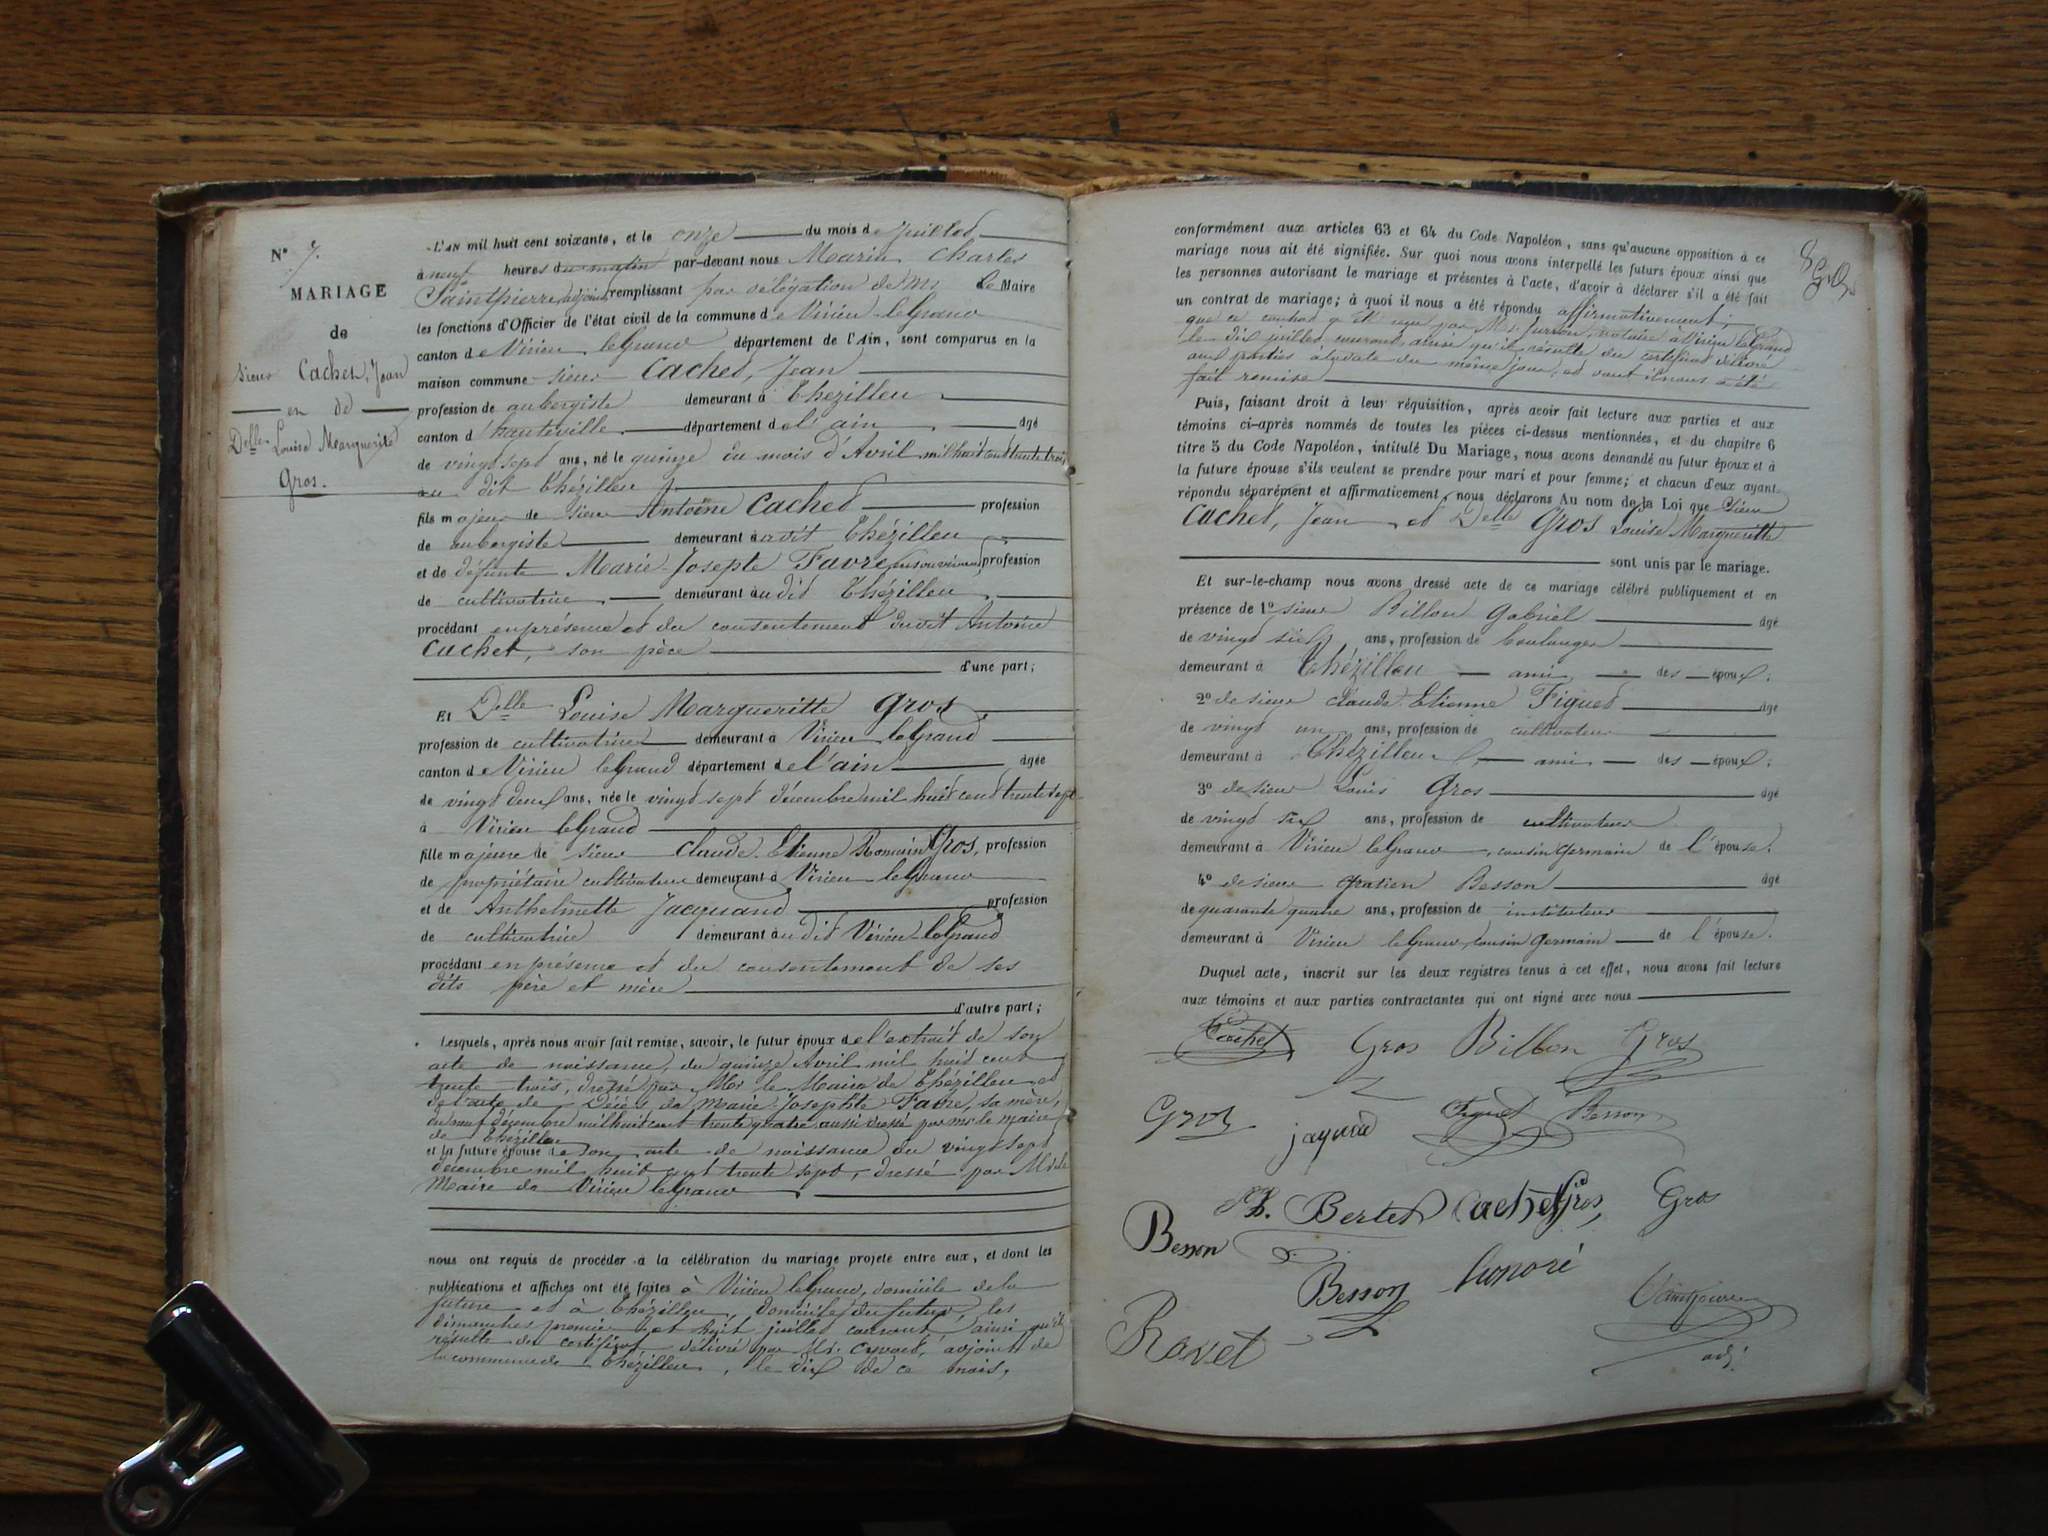 N° 7.
MARIAGE
de
Sieur Cachet, Jean
en de
Delle Louise Marguerite
Gros.
L'AN mil huit cent soixante, et le onze du mois de juillet
à neuf heures du matin par-devant nous Marin Charles
Saintpierre, adjoint remplissant par délégation de Mr le Maire
les fonctions d'Officier de l'état civil de la commune de Virieu leGrand
canton de Virieu leGrand département de l'Ain, sont comparus en la
maison commune sieur Cachet, Jean
profession de aubergiste demeurant à Thézillieu
canton d'hauteville département de l'ain âgé
de vingt sept ans, né le quinze du mois d'Avril mil huit cent trente trois
au dit Thézillieu
fils majeur de sieur Antoine Cachet profession
de aubergiste demeurant audit Thézillieu
et de défunte Marie-Josephte Favre, profession
de cultivatrice demeurant audit Thézillieu
procédant en présence et du consentement dudit Antoine
Cachet, son père
d'une part;
Et Delle Louise Margueritte Gros
profession de cultivatrice demeurant à Virieu leGrand
canton de Virieu leGrand département de l'ain âgée
de vingt deux ans, née le vingt sept décembre mil huit cent trente sept
à Virieu leGrand
fille majeure de sieur Claude-Etienne Romain Gros, profession
de propriétaire cultivateur demeurant à Virieu leGrand
et de Anthelmette Jacquand profession
de cultivatrice demeurant audit Virieu-leGrand
procédant en présence et du consentement de ses
dits père et mère
d'autre part;
Lesquels, après nous avoir fait remise, savoir, le futur époux de l'extrait de son
acte de naissance, du quinze Avril mil huit cent
trente trois, dressé par Mr le Maire de Thézillieu et
de l'acte de Décès de Marie-Josephte Favre, sa mère,
du neuf décembre mil huit cent trente quatre aussi dressé par mr le maire
de Thézillieu
et la future épouse de son acte de naissance du vingt sept
décembre mil huit cent trente sept, dressé par Mr le
Maire de Virieu leGrand
nous ont requis de procéder à la célébration du mariage projeté entre eux, et dont les
publications et affiches ont été faites à Virieu leGrand, domicile de la
future et à Thézillieu, domicile du futur, les
dimanches premier et huit juillet courant, ainsi qu'il
résulte du certificat délivré par Mr. adjoint de
la commune de Thézillieu, le dix de ce mois,
conformément aux articles 63 et 64 du Code Napoléon, sans qu'aucune opposition à ce
mariage nous ait été signifiée. Sur quoi nous avons interpellé les futurs époux ainsi que
les personnes autorisant le mariage et présentes à l'acte, d'avoir à déclarer s'il a été fait
un contrat de mariage; à quoi il nous a été répondu affirmativement;
que ce contrat a été reçu par Me. notaire à Virieu leGrand
le dix juillet courant, ainsi qu'il résulte du certificat délivré
aux parties à la date du même jour, et dont il nous a été
fait remise
Puis, faisant droit à leur réquisition, après avoir fait lecture aux parties et aux
témoins ci-après nommés de toutes les pièces ci-dessus mentionnées, et du chapitre 6
titre 5 du Code Napoléon, intitulé Du Mariage, nous avons demandé au futur époux et à
la future épouse s'ils veulent se prendre pour mari et pour femme; et chacun d'eux ayant
répondu séparément et affirmativement, nous déclarons Au nom de la Loi que Sieur
Cachet, Jean et Delle Gros Louise Margueritte
sont unis par le mariage.
Et sur-le-champ nous avons dressé acte de ce mariage célébré publiquement et en
présence de 1° sieur Billon Gabriel âgé
de vingt six ans, profession de boulanger
demeurant à Thézillieu ami des époux;
2° de sieur Claude-Etienne Figuet âgé
de vingt un ans, profession de cultivateur
demeurant à Thézillieu ami des époux;
3° de sieur Louis Gros âgé
de vingt six ans, profession de cultivateur
demeurant à Virieu leGrand, cousin germain de l'épouse.
4° de sieur Gratien Besson âgé
de quarante quatre ans, profession de instituteur
demeurant à Virieu leGrand, cousin germain de l'épouse.
Duquel acte, inscrit sur les deux registres tenus à cet effet, nous avons fait lecture
aux témoins et aux parties contractantes qui ont signé avec nous
Cachet Gros Billon Gros
Gros jaquand Figuet Besson
Bertet Cachet Gros, Gros
Besson
Besson honoré
Ravet Saintpierre
adj.